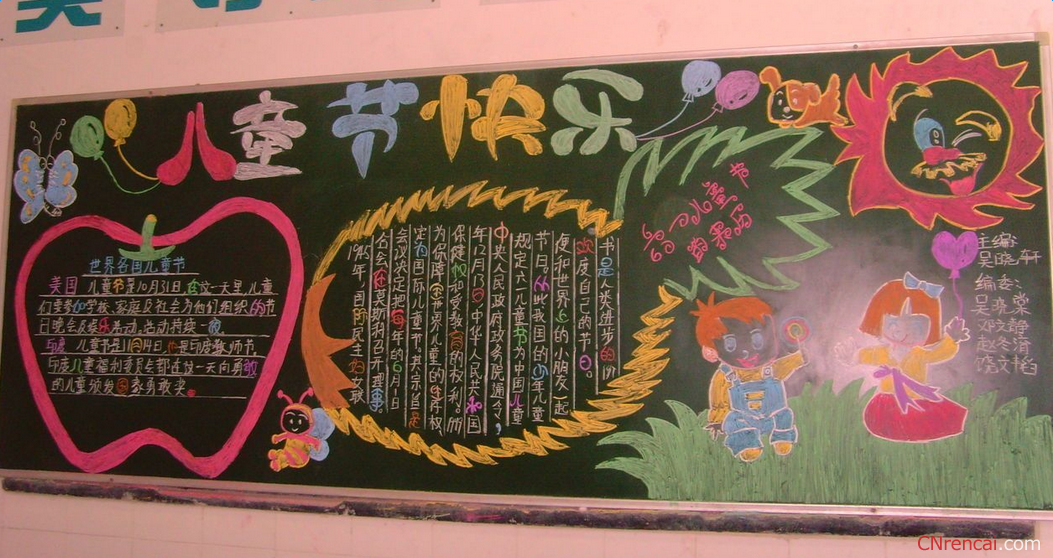 儿童节快乐
世界各国儿童节
美国 儿童节是10月31日,在这一天里,儿童
们要参加学校、家庭及社会为他们组织的节
日晚会及娱乐活动,活动持续一夜。
印度 儿童节是11月14日,也是印度教师节
印度儿童福利委员会都在这一天向勇敢
的儿童颁发国家勇敢奖
1945年,国际民主妇女联
合会在莫斯科召开理事
会议决定把每年的6月1日
定为国际儿童节,其宗旨是
为保障全世界儿童的生存权
保健权和受教育的权利。
年12月23日 中华人民共和国
中央人民政府政务院通令,
规定六一儿童节为中国儿童
节日,从此我国的少年儿童
便和世界上的小朋友一起
欢度自己的节日。
书是人类进步的阶
六一儿童节
主编:
吴晓轩
编委:
吴晓棠
邓文静
赵冬清
饶文韬
CNrencai.com